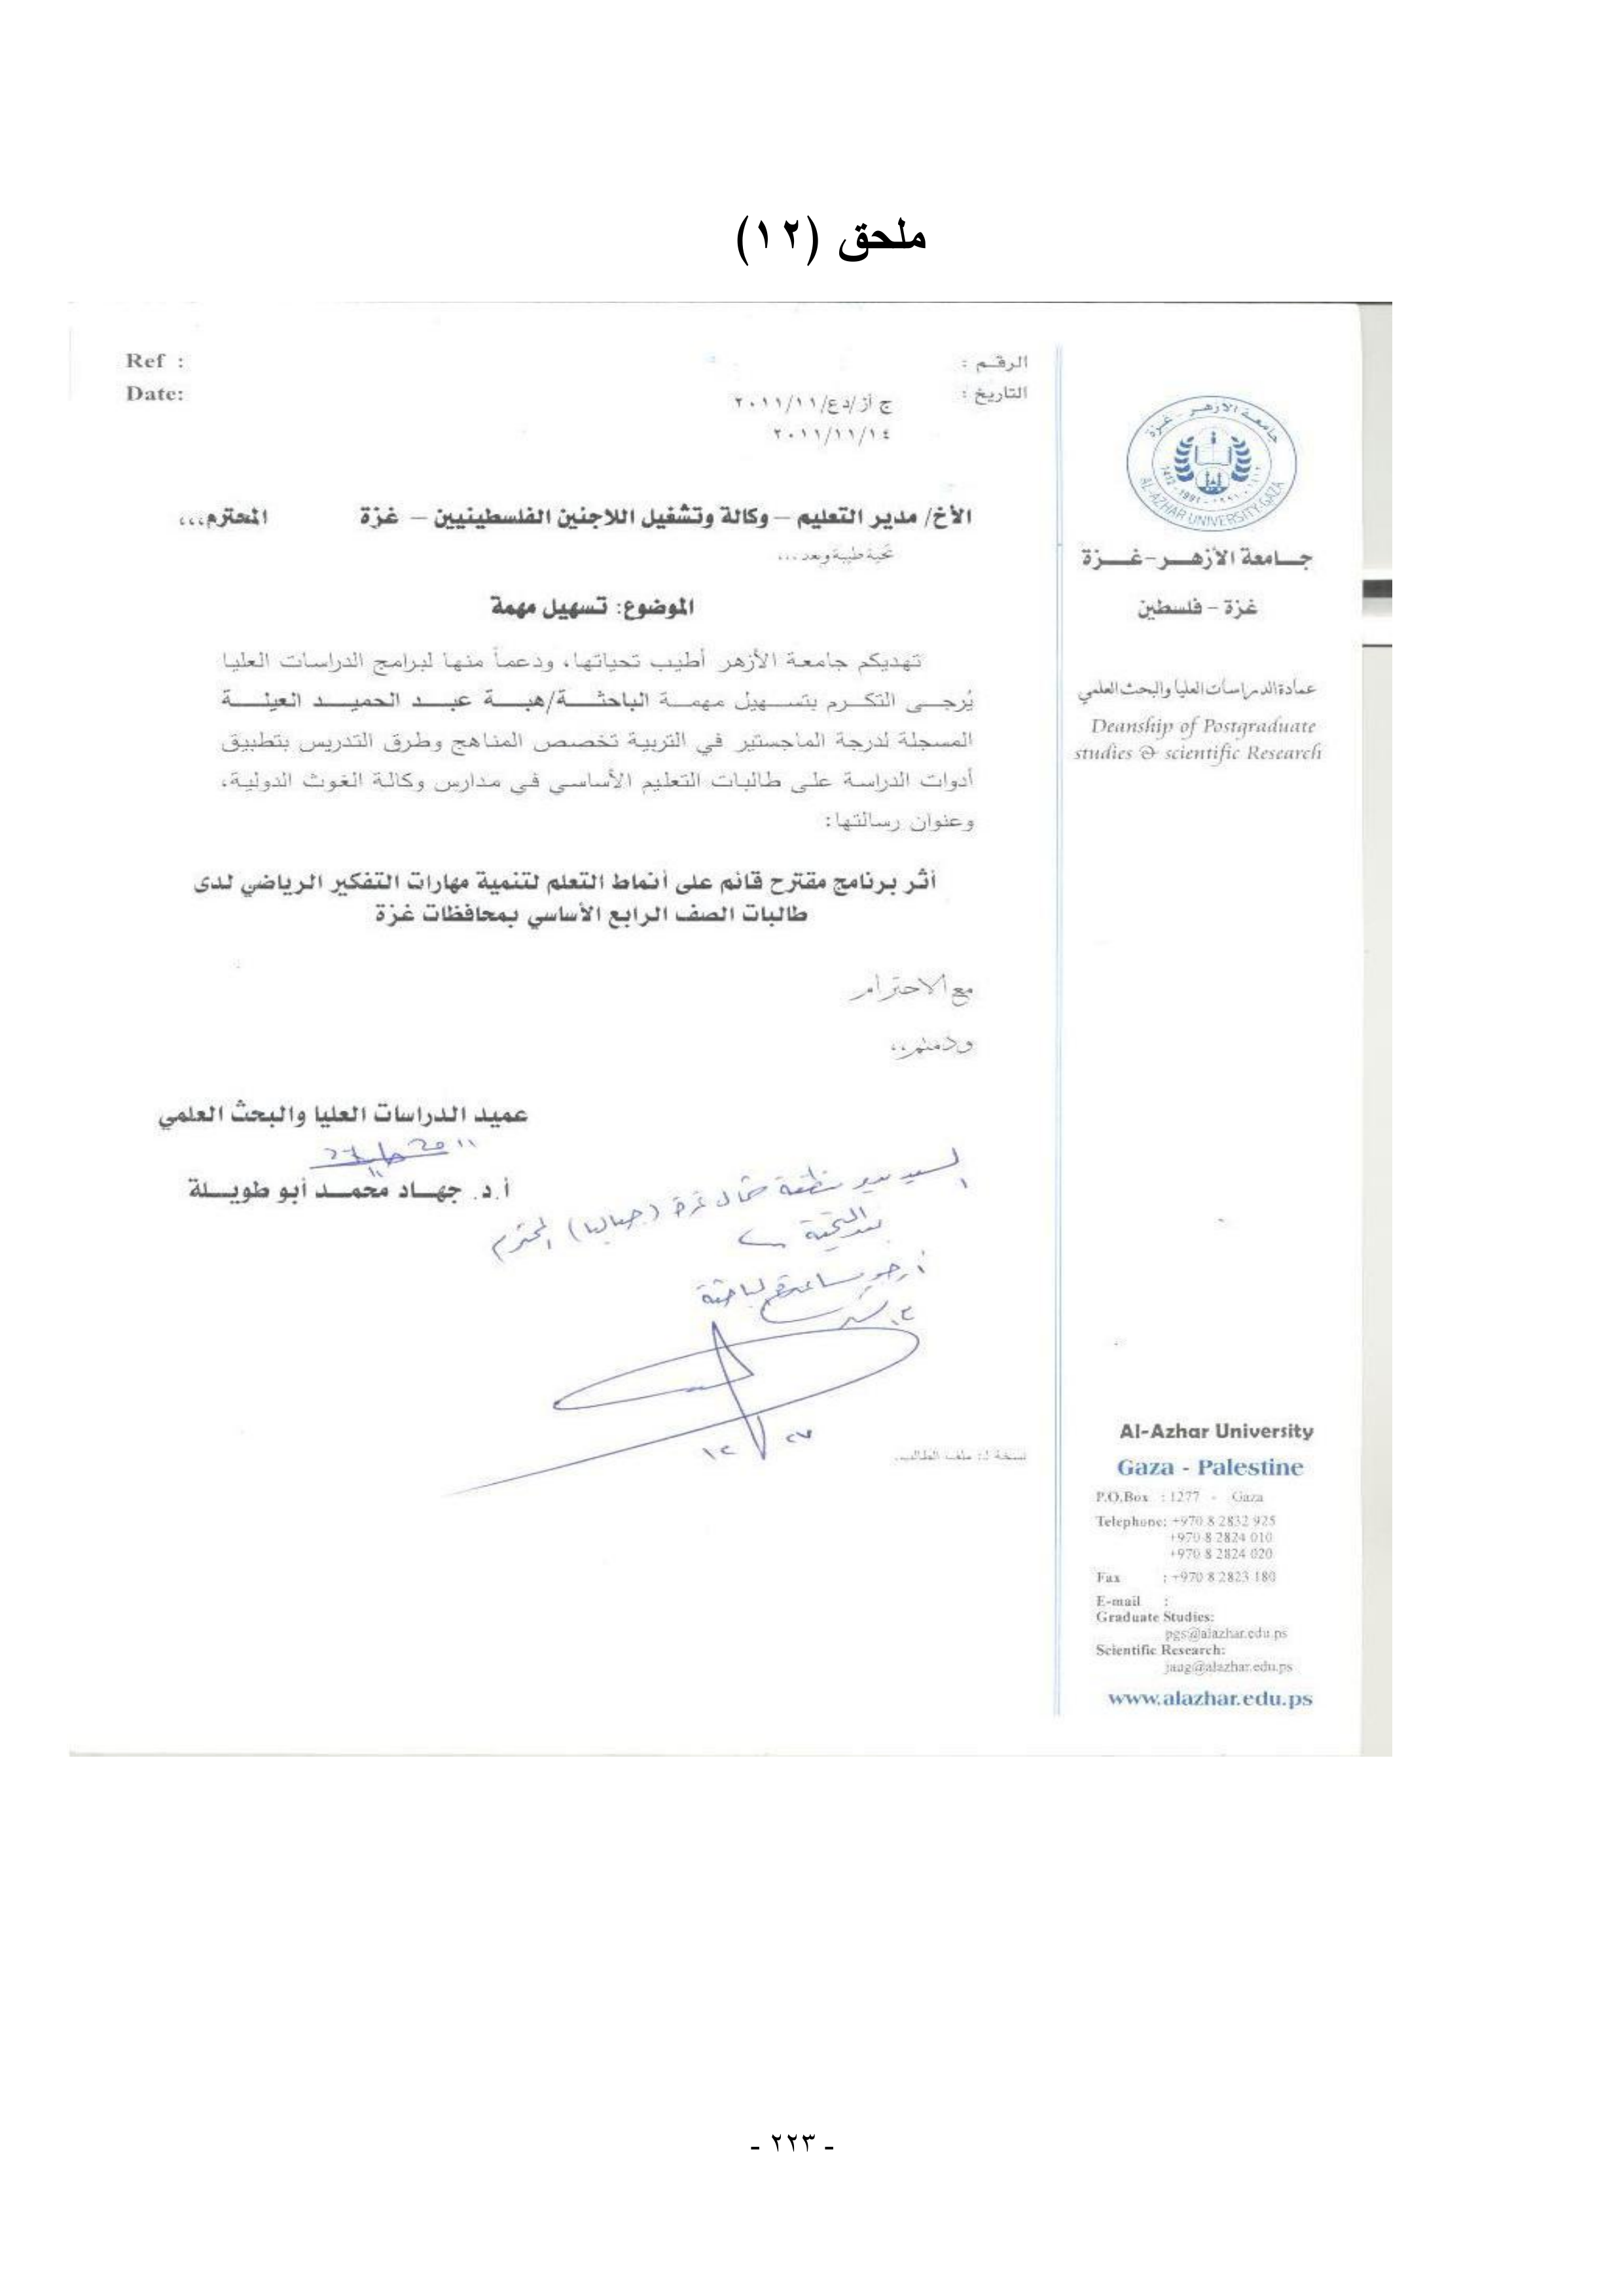 ملحق (١٢)
Ref :
Date:
الرقم :
التاريخ :
ج أز/دع/٢٠١١/١١
٢٠١١/١١/١٤
جامعة الأزهر - غزة
AL-AZHAR UNIVERSITY-GAZA
جامعة الأزهر-غزة
غزة - فلسطين
عمادة الدراسات العليا والبحث العلمي
Deanship of Postgraduate
studies & scientific Research
الأخ/ مدير التعليم – وكالة وتشغيل اللاجئين الفلسطينيين – غزة المحترم،،،
تحية طيبة وبعد...
الموضوع: تسهيل مهمة
تهديكم جامعة الأزهر أطيب تحياتها، ودعماً منها لبرامج الدراسات العليا
يُرجى التكرم بتسهيل مهمة الباحثة/هبة عبد الحميد العيلة
المسجلة لدرجة الماجستير في التربية تخصص المناهج وطرق التدريس بتطبيق
أدوات الدراسة على طالبات التعليم الأساسي في مدارس وكالة الغوث الدولية،
وعنوان رسالتها:
أثر برنامج مقترح قائم على أنماط التعلم لتنمية مهارات التفكير الرياضي لدى
طالبات الصف الرابع الأساسي بمحافظات غزة
مع الاحترام
ودمتم،،
عميد الدراسات العليا والبحث العلمي
أ.د. جهاد محمد أبو طويلة
السيد مدير منطقة شمال غزة (جباليا) المحترم
بعد التحية
أرجو مساعدتكم للباحثة
٢٧
١٢
نسخة لـ: ملف الطالب.
Al-Azhar University
Gaza - Palestine
P.O.Box : 1277 - Gaza
Telephone: +970 8 2832 925
+970 8 2824 010
+970 8 2824 020
Fax : +970 8 2823 180
E-mail :
Graduate Studies:
pgs@alazhar.edu.ps
Scientific Research:
jaug@alazhar.edu.ps
www.alazhar.edu.ps
- ٢٢٣ -